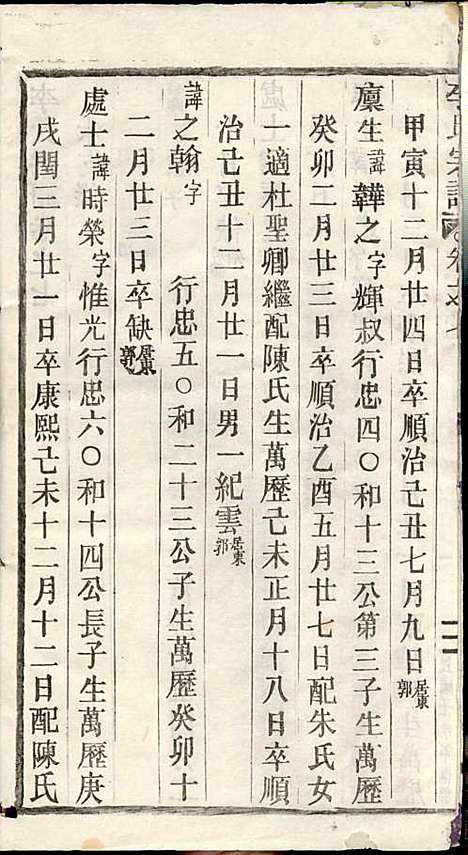 李氏宗譜 卷之七
甲寅十二月廿四日卒順治己丑七月九日居東郭
廩生諱韡之字輝叔行忠四〇和十三公第三子生萬歷
癸卯二月廿三日卒順治乙酉五月廿七日配朱氏女
一適杜聖卿繼配陳氏生萬歷己未正月十八日卒順
治己丑十二月廿一日男一紀雲居東郭
諱之翰字 行忠五〇和二十三公子生萬歷癸卯十
二月廿三日卒缺居東郭
處士諱時榮字惟光行忠六〇和十四公長子生萬歷庚
戌閏三月廿一日卒康熙己未十二月十二日配陳氏